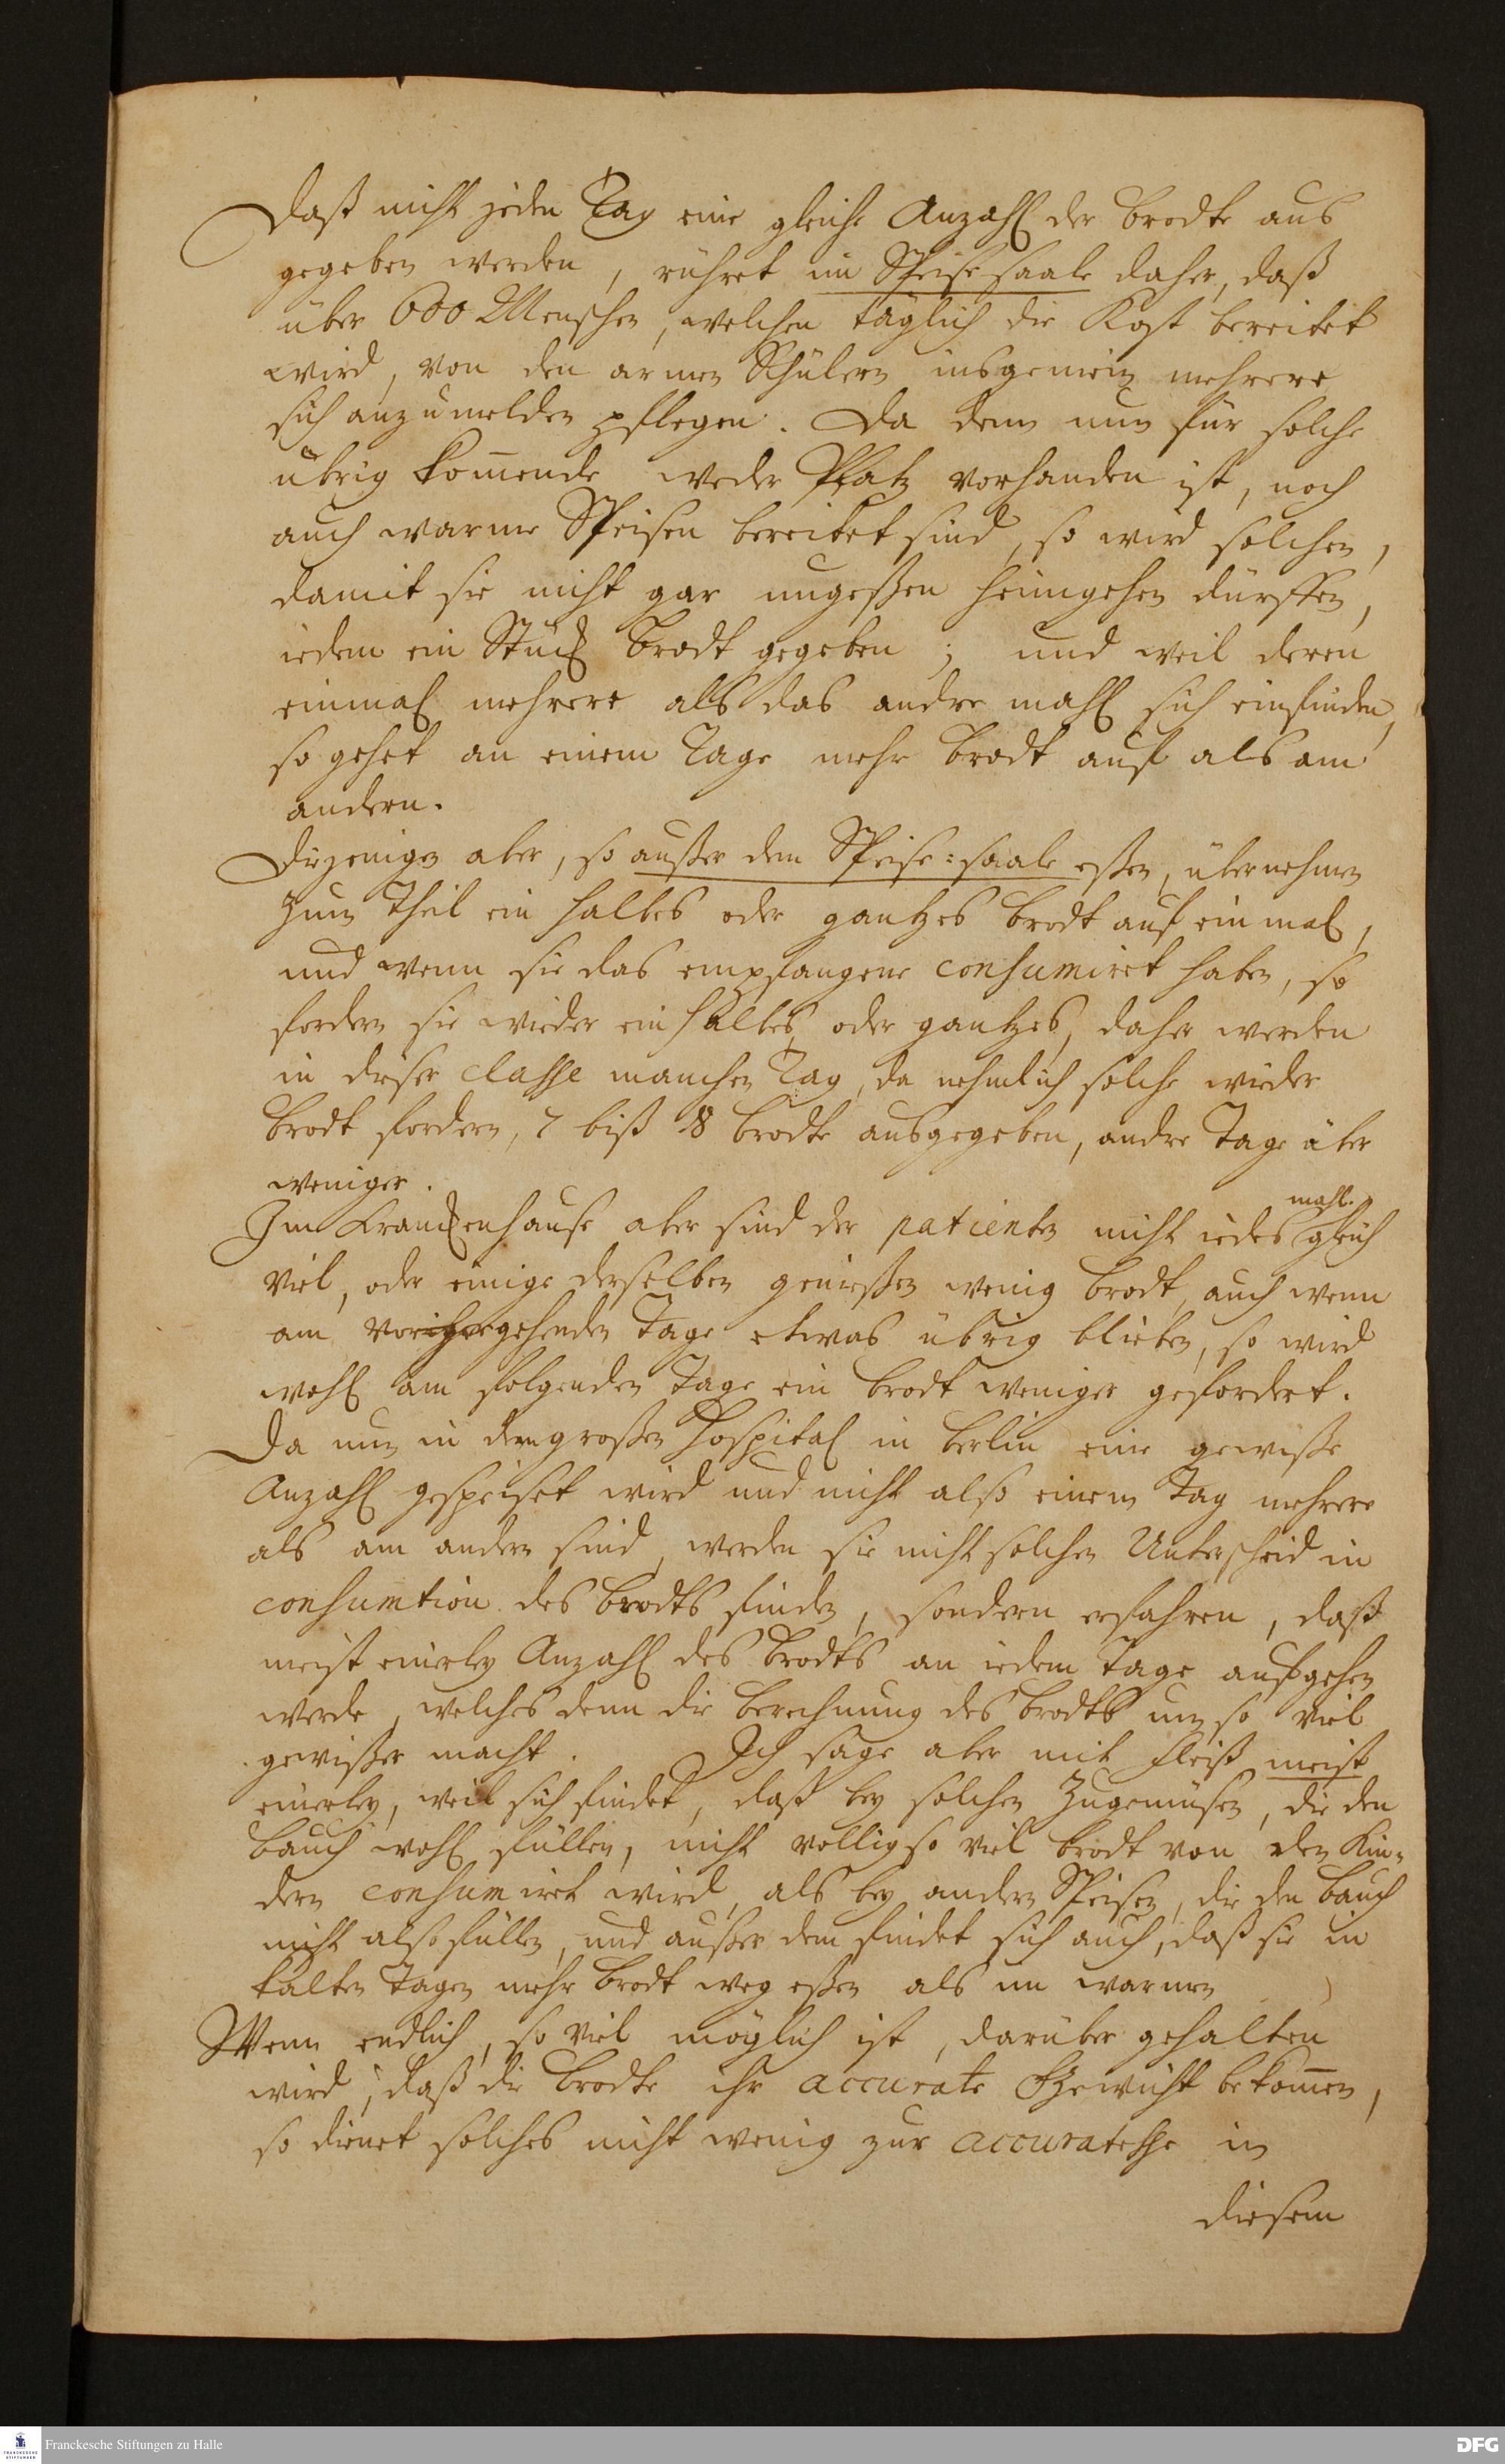 Daß nicht jeden Tag eine gleiche Anzahl der Brodte aus
gegeben werden, rühret im Speisesaale daher, daß
über 600 Menschen, welchen täglich die Kost bereitet
wird, von den armen Schülern insgemein mehrere
sich anzumelden pflegen. Da denn nun für solche
übrig kom̄ende weder Platz vorhanden ist, noch
auch warme Speisen bereitet sind, so wird solchen,
damit sie nicht gar ungeßen heimgehen dürffen,
iedem ein Stück Brodt gegeben; und weil deren
einmal mehrere als das andre mahl sich einfinden,
so gehet an einem Tage mehr Brodt auf als am
andern.
Diejenigen aber, so außer dem Speise=saale eßen, übernehmen
zum Theil ein halbes oder gantzes Brodt auf ein mal,
und wenn sie das empfangene consumiret haben, so
fordern sie wieder ein halbes oder gantzes, daher werden
in dieser Classe manchen Tag, da nehmlich solche wieder
Brodt fordern, 7 biß 8 Brodte ausgegeben, andre Tage aber
weniger.
Im Kranckenhause aber sind der patienten nicht iedes mahl gleich
viel, oder einige derselben genießen wenig Brodt, auch wenn
am vorhergehenden Tage etwas übrig blieben, so wird
wohl am folgenden Tage ein Brodt weniger gefordert.
Da nun in dem großen Hospital in Berlin eine gewiße
Anzahl gespeiset wird und nicht also einem Tag mehrere
als am andern sind, werden sie nicht solchen Unterscheid in
consumtion des Brodts finden, sondern erfahren, daß
meist einerley Anzahl des Brodts an iedem Tage aufgehen
werde, welches denn die Berechnung des Brodts um so viel
gewißer macht. Ich sage aber mit Fleiß meist
einerley, weil sich findet, daß bey solchen Zugemüsen, die den
Bauch wohl füllen, nicht völlig so viel Brodt von den Kin=
dern consumiret wird, als bey andern Speisen, die den Bauch
nicht also füllen, und außer dem findet sich auch, daß sie in
kalten Tagen mehr Brodt weg eßen als im warmen
Wenn endlich, so viel möglich ist, darüber gehalten
wird, daß die Brodte ihr accurate Gewicht bekom̄en,
so dienet solches nicht wenig zur accuratesse in
diesem
Franckesche Stiftungen zu Halle
DFG